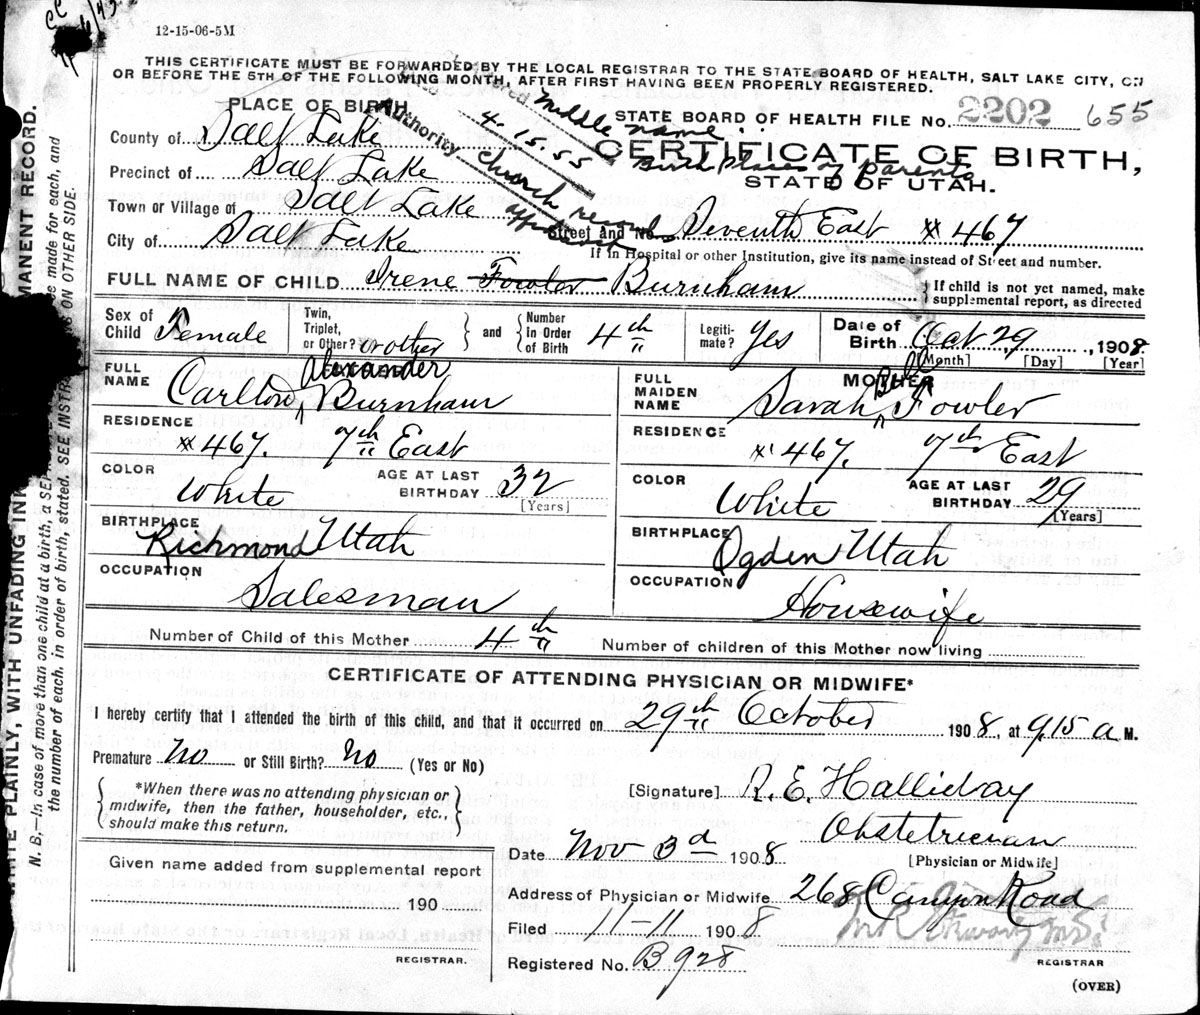 12-15-06-5M
THIS CERTIFICATE MUST BE FORWARDED BY THE LOCAL REGISTRAR TO THE STATE BOARD OF HEALTH, SALT LAKE CITY, ON
OR BEFORE THE 5TH OF THE FOLLOWING MONTH, AFTER FIRST HAVING BEEN PROPERLY REGISTERED.
STATE BOARD OF HEALTH FILE NO. 2202 655
Middle name
Birth Places of Parents
4-15-55
Authority church record
CERTIFICATE OF BIRTH,
STATE OF UTAH.
PLACE OF BIRTH
County of Salt Lake
Precinct of Salt Lake
Town or Village of Salt Lake
City of Salt Lake
Street and No. Seventh East # 467
If in Hospital or other Institution, give its name instead of Street and number.
FULL NAME OF CHILD Irene Fowler Burnham
If child is not yet named, make supplemental report, as directed
Sex of Child Female
Twin, Triplet, or Other? or other and Number in Order of Birth 4th
Legitimate? Yes
Date of Birth Oct 29, 1908
[Month] [Day] [Year]
FULL NAME Carlton Alexander Burnham
RESIDENCE # 467. 7th East
COLOR White AGE AT LAST BIRTHDAY 32 [Years]
BIRTHPLACE Richmond Utah
OCCUPATION Salesman
MOTHER
FULL MAIDEN NAME Sarah Fowler
RESIDENCE # 467. 7th East
COLOR White AGE AT LAST BIRTHDAY 29 [Years]
BIRTHPLACE Ogden Utah
OCCUPATION Housewife
Number of Child of this Mother 4th Number of children of this Mother now living
CERTIFICATE OF ATTENDING PHYSICIAN OR MIDWIFE*
I hereby certify that I attended the birth of this child, and that it occurred on 29th October 1908, at 9.15 a M.
Premature No or Still Birth? No (Yes or No)
*When there was no attending physician or midwife, then the father, householder, etc., should make this return.
[Signature] R. E. Halliday
Obstetrician
[Physician or Midwife]
Date Nov 3d 1908
Address of Physician or Midwife 268 Canyon Road
Given name added from supplemental report
190
REGISTRAR.
Filed 11-11 1908
Registered No. B 928
REGISTRAR
(OVER)
N. B.—In case of more than one child at a birth, a
be made for each, and
the number of each, in order of birth, stated. SEE
ON OTHER SIDE.
PLAINLY, WITH UNFADING
RECORD.